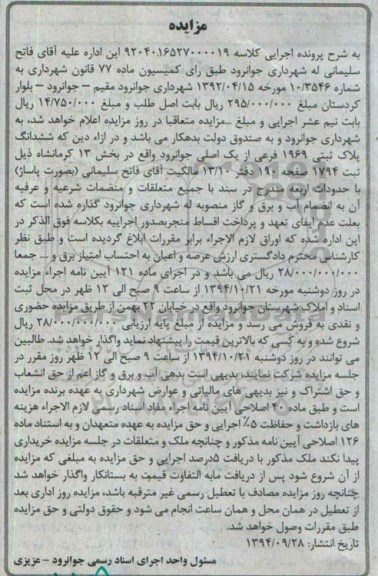 مزایده
به شرح پرونده اجرایی کلاسه ۹۲۰۴۰۱۶۵۲۷۰۰۰۰۱۹ این اداره علیه آقای فاتح
سلیمانی له شهرداری جوانرود طبق رای کمیسیون ماده ۷۷ قانون شهرداری به
شماره ۱۰/۳۵۴۶ مورخه ۱۳۹۲/۰۴/۱۵ شهرداری جوانرود مقیم – جوانرود – بلوار
کردستان مبلغ ۲۹۵/۰۰۰/۰۰۰ ریال بابت اصل طلب و مبلغ ۱۴/۷۵۰/۰۰۰ ریال
بابت نیم عشر اجرایی و مبلغ ...مزایده متعاقبا در روز مزایده اعلام خواهد شد، به
شهرداری جوانرود و به صندوق دولت بدهکار می باشد و در ازاء دین که ششدانگ
پلاک ثبتی ۱۹۶۹ فرعی از یک اصلی جوانرود واقع در بخش ۱۳ کرمانشاه ذیل
ثبت ۱۷۹۴ صفحه ۱۹۱ دفتر ۱۳/۱۰ مالکیت آقای فاتح سلیمانی (بصورت پاساژ)
با حدودات اربعه مندرج در سند با جمیع متعلقات و منضمات شرعیه و عرفیه
آن به انضمام آب و برق و گاز منصوبه له شهرداری جوانرود گذارده شده است که
بعلت عدم ایفای تعهد و پرداخت اقساط منجربصدور اجراییه بکلاسه فوق الذکر در
این اداره شده که اوراق لازم الاجراء برابر مقررات ابلاغ گردیده است و طبق نظر
کارشناس محترم دادگستری ارزش عرصه و اعیان به احتساب امتیاز برق و ... جمعا
۲۸/۰۰۰/۰۰۰/۰۰۰ ریال می باشد و در اجرای ماده ۱۲۱ آیین نامه اجراء مزایده
در روز دوشنبه مورخه ۱۳۹۴/۱۰/۲۱ از ساعت ۹ صبح الی ۱۲ ظهر در محل ثبت
اسناد و املاک شهرستان جوانرود واقع در خیابان ۲۲ بهمن از طریق مزایده حضوری
و نقدی به فروش می رسد و مزایده از مبلغ پایه ارزیابی ۲۸/۰۰۰/۰۰۰/۰۰۰ ریال
شروع شده و به کسی که بالاترین قیمت را پیشنهاد نماید واگذار خواهد شد. طالبین
می توانند در روز دوشنبه ۱۳۹۴/۱۰/۲۱ از ساعت ۹ صبح الی ۱۲ ظهر روز مقرر در
جلسه مزایده شرکت نمایند، بدیهی است بدهی آب و برق و گاز اعم از حق انشعاب
و حق اشتراک و نیز بدیهی های مالیاتی و عوارض شهرداری به عهده برنده مزایده
است و طبق ماده ۴۰ اصلاحی آیین نامه اجراء مفاد اسناد رسمی لازم الاجراء هزینه
های بازداشت و حفاظت ۵٪ اجرایی و حق مزایده به عهده متعهدان و به استناد ماده
۱۲۶ اصلاحی آیین نامه مذکور و چنانچه ملک و متعلقات در جلسه مزایده خریداری
پیدا نکند ملک مذکور با دریافت ۵درصد اجرایی و حق مزایده به مبلغی که مزایده
از آن شروع شود پس از دریافت مابه التفاوت قیمت به بستانکار واگذار خواهد شد
چنانچه روز مزایده مصادف با تعطیل رسمی غیر مترقبه باشد، مزایده روز اداری بعد
از تعطیل در همان محل و همان ساعت انجام می شود و حقوق دولتی و حق مزایده
طبق مقررات وصول خواهد شد.
تاریخ انتشار: ۱۳۹۴/۰۹/۲۸
مسئول واحد اجرای اسناد رسمی جوانرود – عزیزی